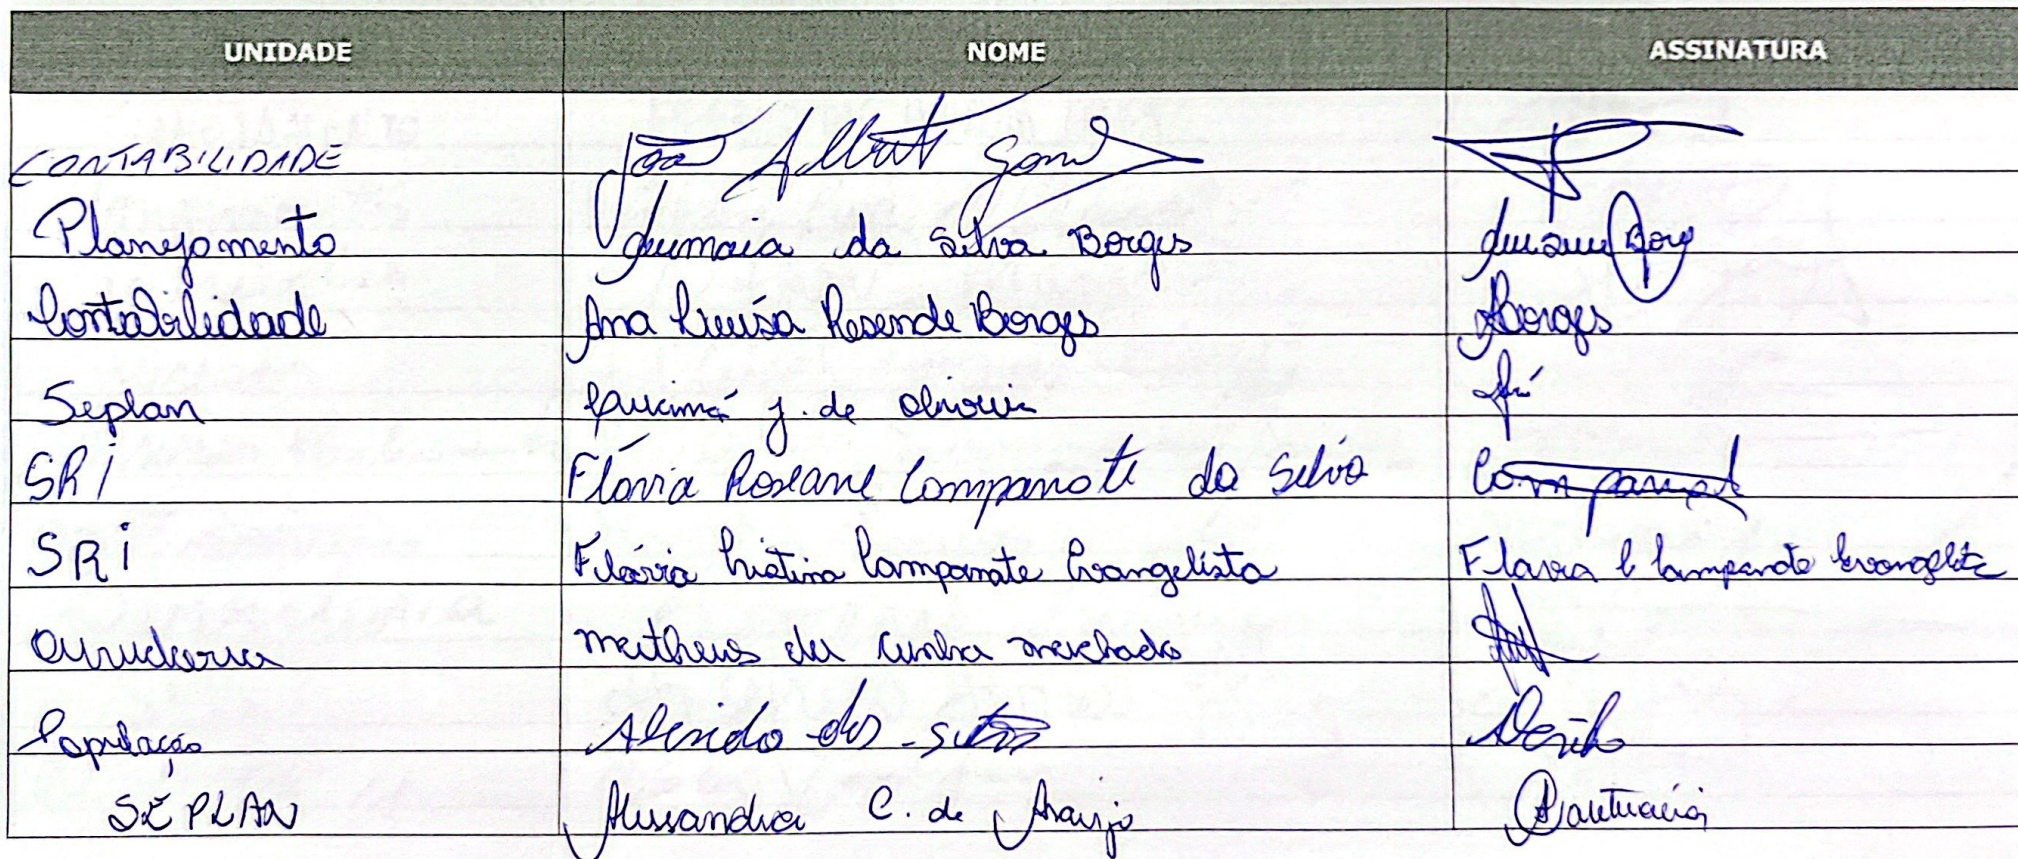 UNIDADE NOME ASSINATURA
CONTABILIDADE João Alberto Gomes
Planejamento da Silva Borges
Contabilidade Ana Luísa Resende Borges Borges
Seplan J. de Oliveira
SRI Flávia Roseane Campanati da Silva
SRI Flávia Cristina Campanate Evangelista Flávia C Campanate Evangelista
Ouvidoria Matheus da Cunha Machado
População dos
SEPLAN Alessandra C. de Araujo